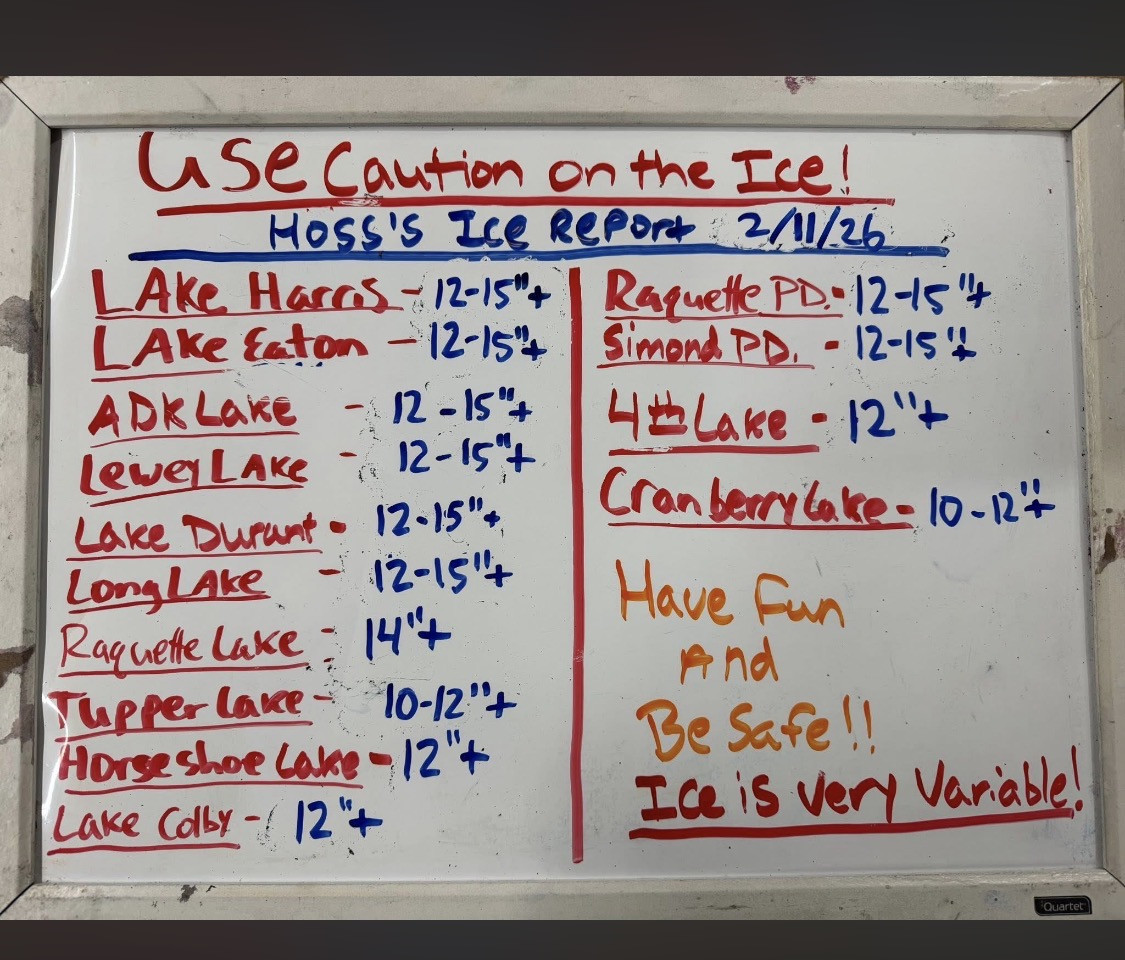 Use Caution on the Ice!
Hoss's Ice Report 2/11/26
LAke Harris - 12-15"+
LAke Eaton - 12-15"+
ADK Lake - 12-15"+
Lewey LAke - 12-15"+
Lake Durant - 12-15"+
Long LAke - 12-15"+
Raquette Lake - 14"+
Tupper Lake - 10-12"+
Horseshoe Lake - 12"+
Lake Colby - 12"+
Raquette PD. - 12-15"+
Simond PD. - 12-15"+
4th Lake - 12"+
Cranberry Lake - 10-12"+
Have Fun
And
Be Safe!!
Ice is very Variable!
Quartet